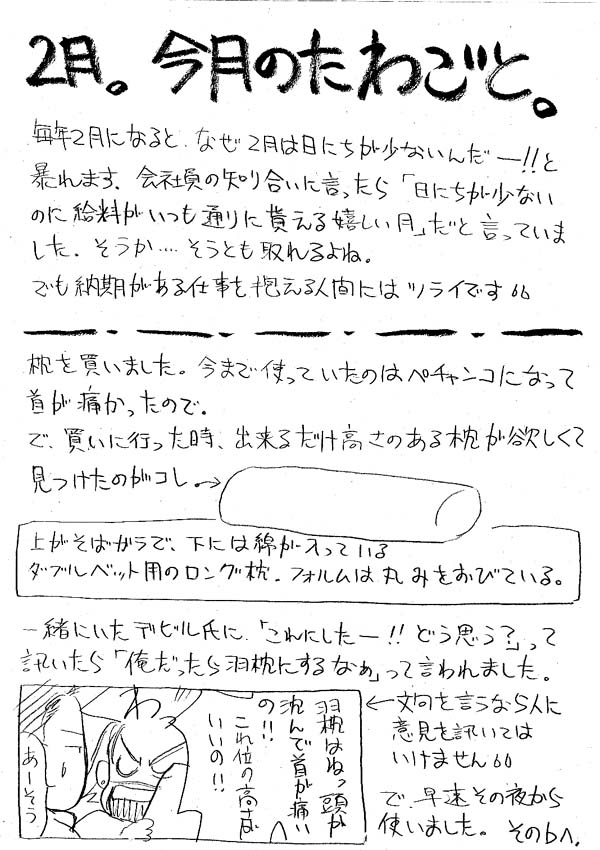 2月。今月のたわごと。
毎年2月になると、なぜ2月は日にちが少ないんだー!!と
暴れます。会社員の知り合いに言ったら「日にちが少ない
のに給料がいつも通りに貰える嬉しい月」だと言っていま
した。そうか…そうとも取れるよね。
でも納期がある仕事を抱える人間にはツライです
枕を買いました。今まで使っていたのはペチャンコになって
首が痛かったので。
で、買いに行った時、出来るだけ高さのある枕が欲しくて
見つけたのがコレ。→
上がそばガラで、下には綿が入っている
ダブルベット用のロング枕。フォルムは丸みをおびている。
一緒にいたデビル氏に、「これにしたー!!どう思う?」って
訊いたら「俺だったら羽枕にするなぁ」って言われました。
わっ
羽枕はねっ頭が
沈んで首が痛い
の!!
これ位の高さが
いいの!!
あーそう
←文句を言うなら人に
意見を訊いては
いけません
で、早速その夜から
使いました。そのbへ。